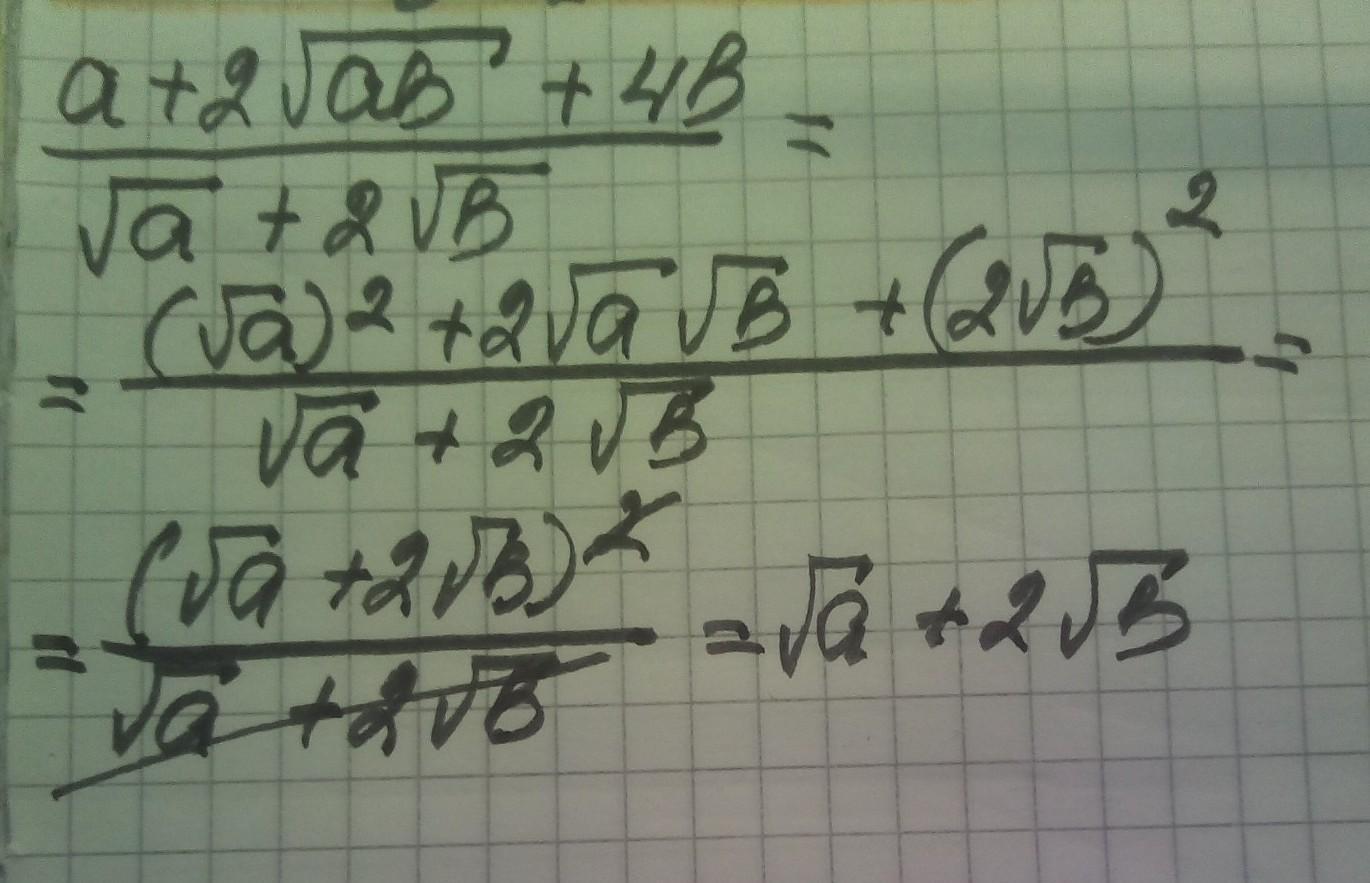 a + 2√(aB) + 4B
/ (√a + 2√B) =
= ((√a)² + 2√a √B + (2√B)²)
/ (√a + 2√B) =
= (√a + 2√B)²
/ (√a + 2√B) = √a + 2√B